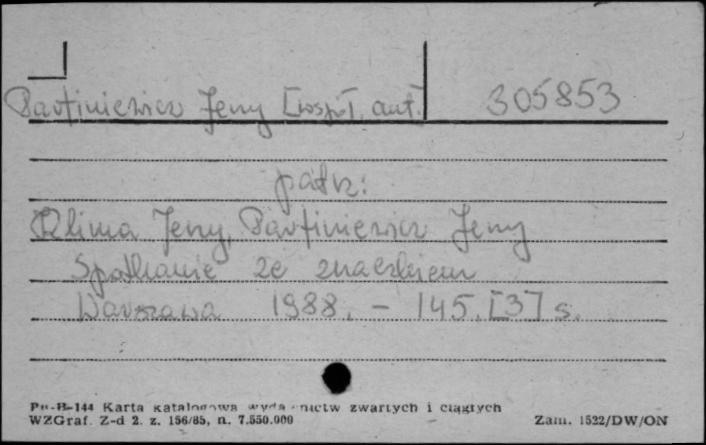 Partiniewicz Jerzy [wspł. aut.] 305853
patrz:
Klima Jerzy, Partiniewicz Jerzy
Spotkanie ze znaczkiem
Warszawa 1988. - 145, [3] s.
Pu-B-144 Karta katalogowa wydawnictw zwartych i ciągłych
WZGraf. Z-d 2. z. 156/85, n. 7.550.000 Zam. 1522/DW/ON